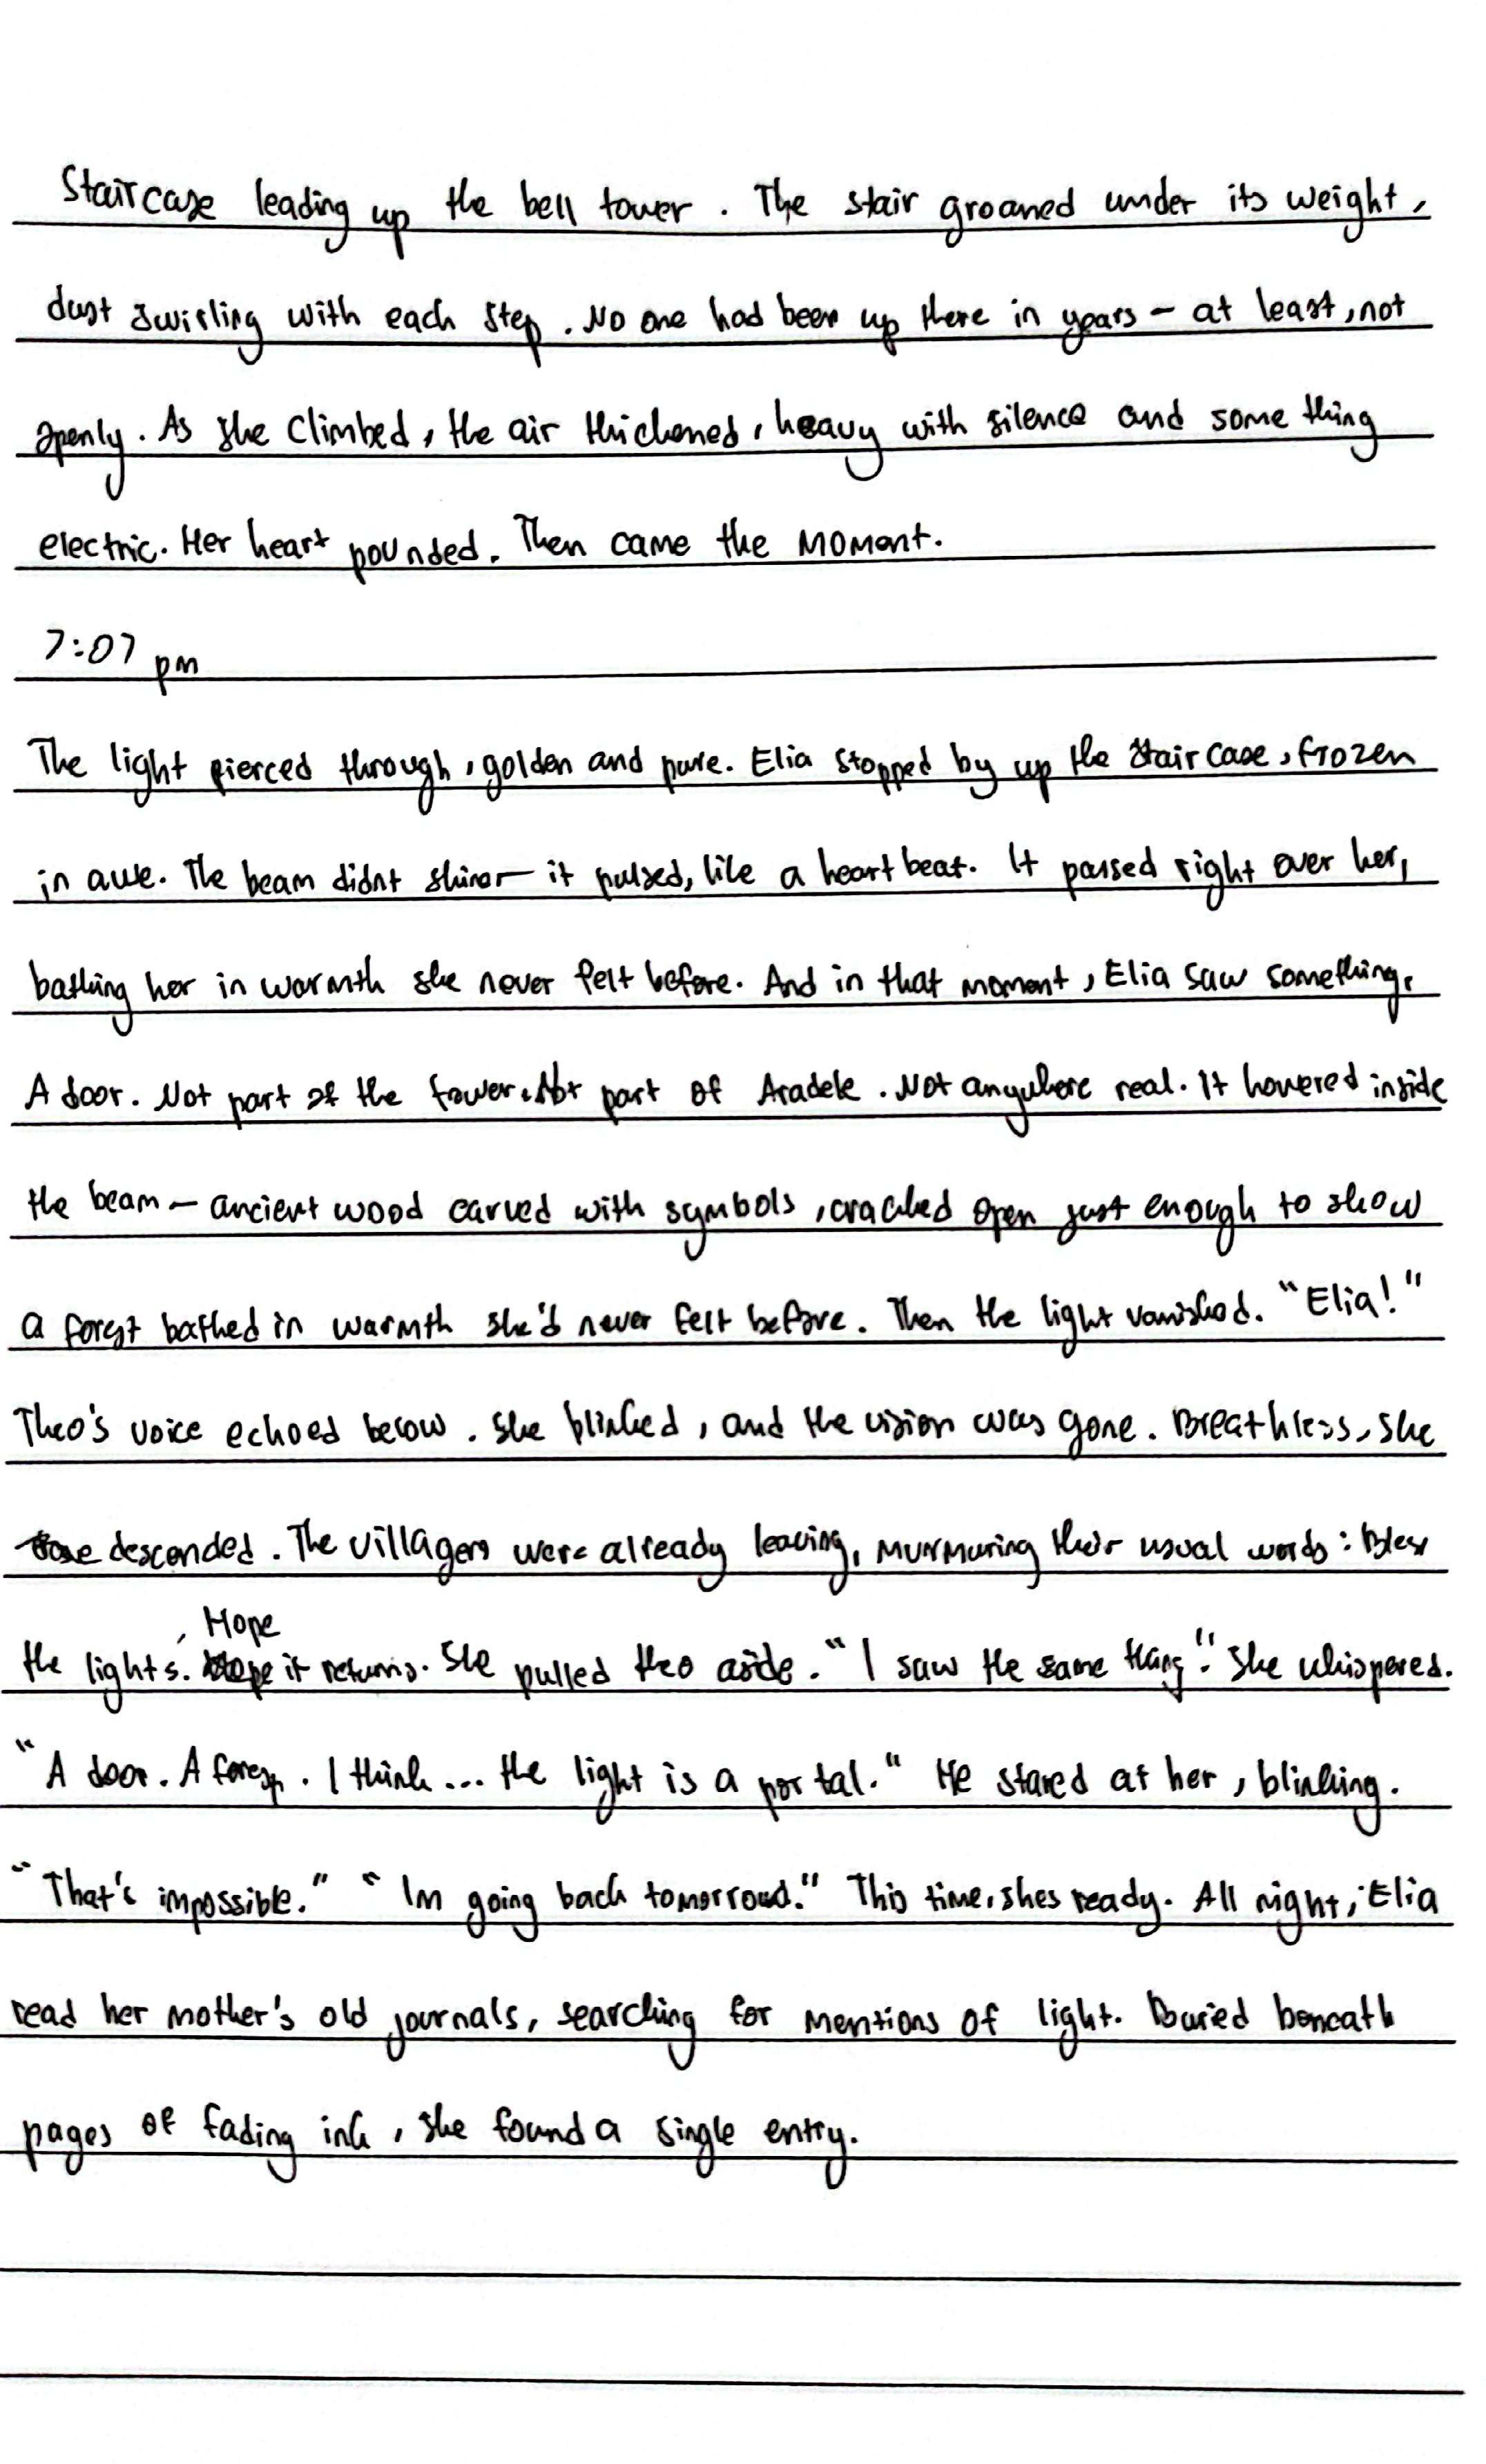 Staircase leading up the bell tower. The stair groaned under its weight,
dust swirling with each step. No one had been up there in years - at least, not
openly. As she climbed, the air thickened, heavy with silence and some thing
electric. Her heart pounded. Then came the moment.
7:07 pm
The light pierced through, golden and pure. Elia stopped by up the staircase, frozen
in awe. The beam didnt shine - it pulsed, like a heart beat. It passed right over her,
bathing her in warmth she never felt before. And in that moment, Elia saw something.
A door. Not part of the tower. Not part of Aradele. Not anywhere real. It hovered inside
the beam - ancient wood carved with symbols, cracked open just enough to show
a forest bathed in warmth she'd never felt before. Then the light vanished. "Elia!"
Theo's voice echoed below. She blinked, and the vision was gone. Breathless, she
descended. The villagers were already leaving, murmuring their usual words: Bless
the lights. Hope it returns. She pulled theo aside. "I saw the same thing". She whispered.
"A door. A forest. I think... the light is a portal." He stared at her, blinking.
"That's impossible." "Im going back tomorrow." This time, shes ready. All night, Elia
read her mother's old journals, searching for mentions of light. Buried beneath
pages of fading ink, she found a single entry.